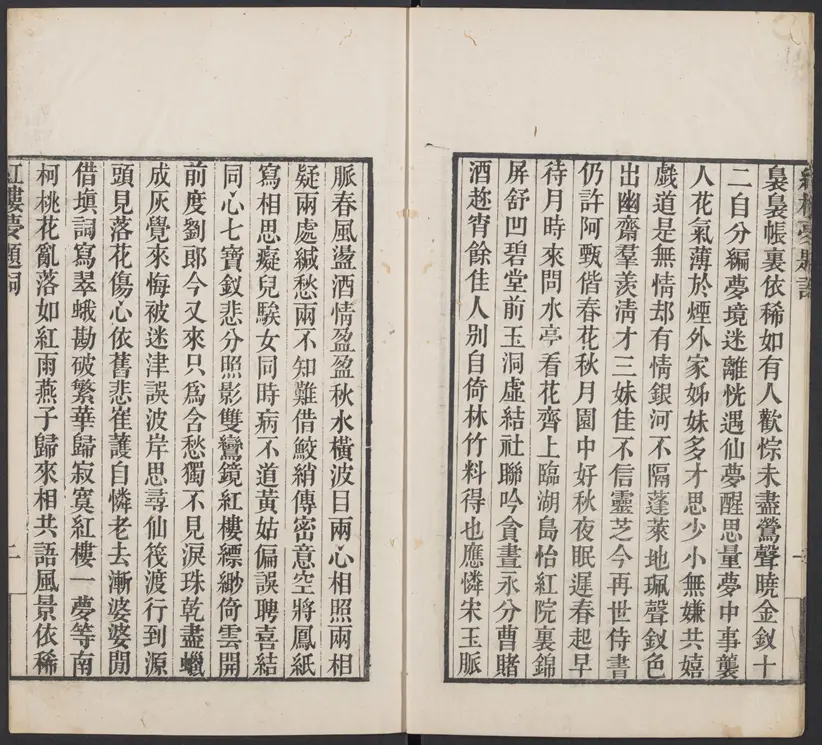 紅樓夢題詞
裊裊帳裏依稀如有人歡悰未盡鶯聲曉金釵十
二自分編夢境迷離恍遇仙夢醒思量夢中事襲
人花氣薄於煙外家姊妹多才思少小無嫌共嬉
戲道是無情却有情銀河不隔蓬萊地珮聲釵色
出幽齋羣羨淸才三妹佳不信靈芝今再世侍書
仍許阿甄偕春花秋月園中好秋夜眠遲春起早
待月時來問水亭看花齊上臨湖島怡紅院裏錦
屏舒凹碧堂前玉洞虛結社聯吟貪晝永分曹賭
酒趂宵餘佳人別自倚林竹料得也應憐宋玉脈
脈春風盪酒情盈盈秋水橫波目兩心相照兩相
疑兩處緘愁兩不知難借鮫綃傳密意空將鳳紙
寫相思癡兒騃女同時病不道黃姑偏誤聘喜結
同心七寶釵悲分照影雙鸞鏡紅樓縹緲倚雲開
前度劉郞今又來只爲含愁獨不見淚珠乾盡蠟
成灰覺來悔被迷津誤波岸思尋仙筏渡行到源
頭見落花傷心依舊悲崔護自憐老去漸婆婆閒
借塡詞寫翠蛾勘破繁華歸寂寞紅樓一夢等南
柯桃花亂落如紅雨燕子歸來相共語風景依稀
紅樓夢題詞
二